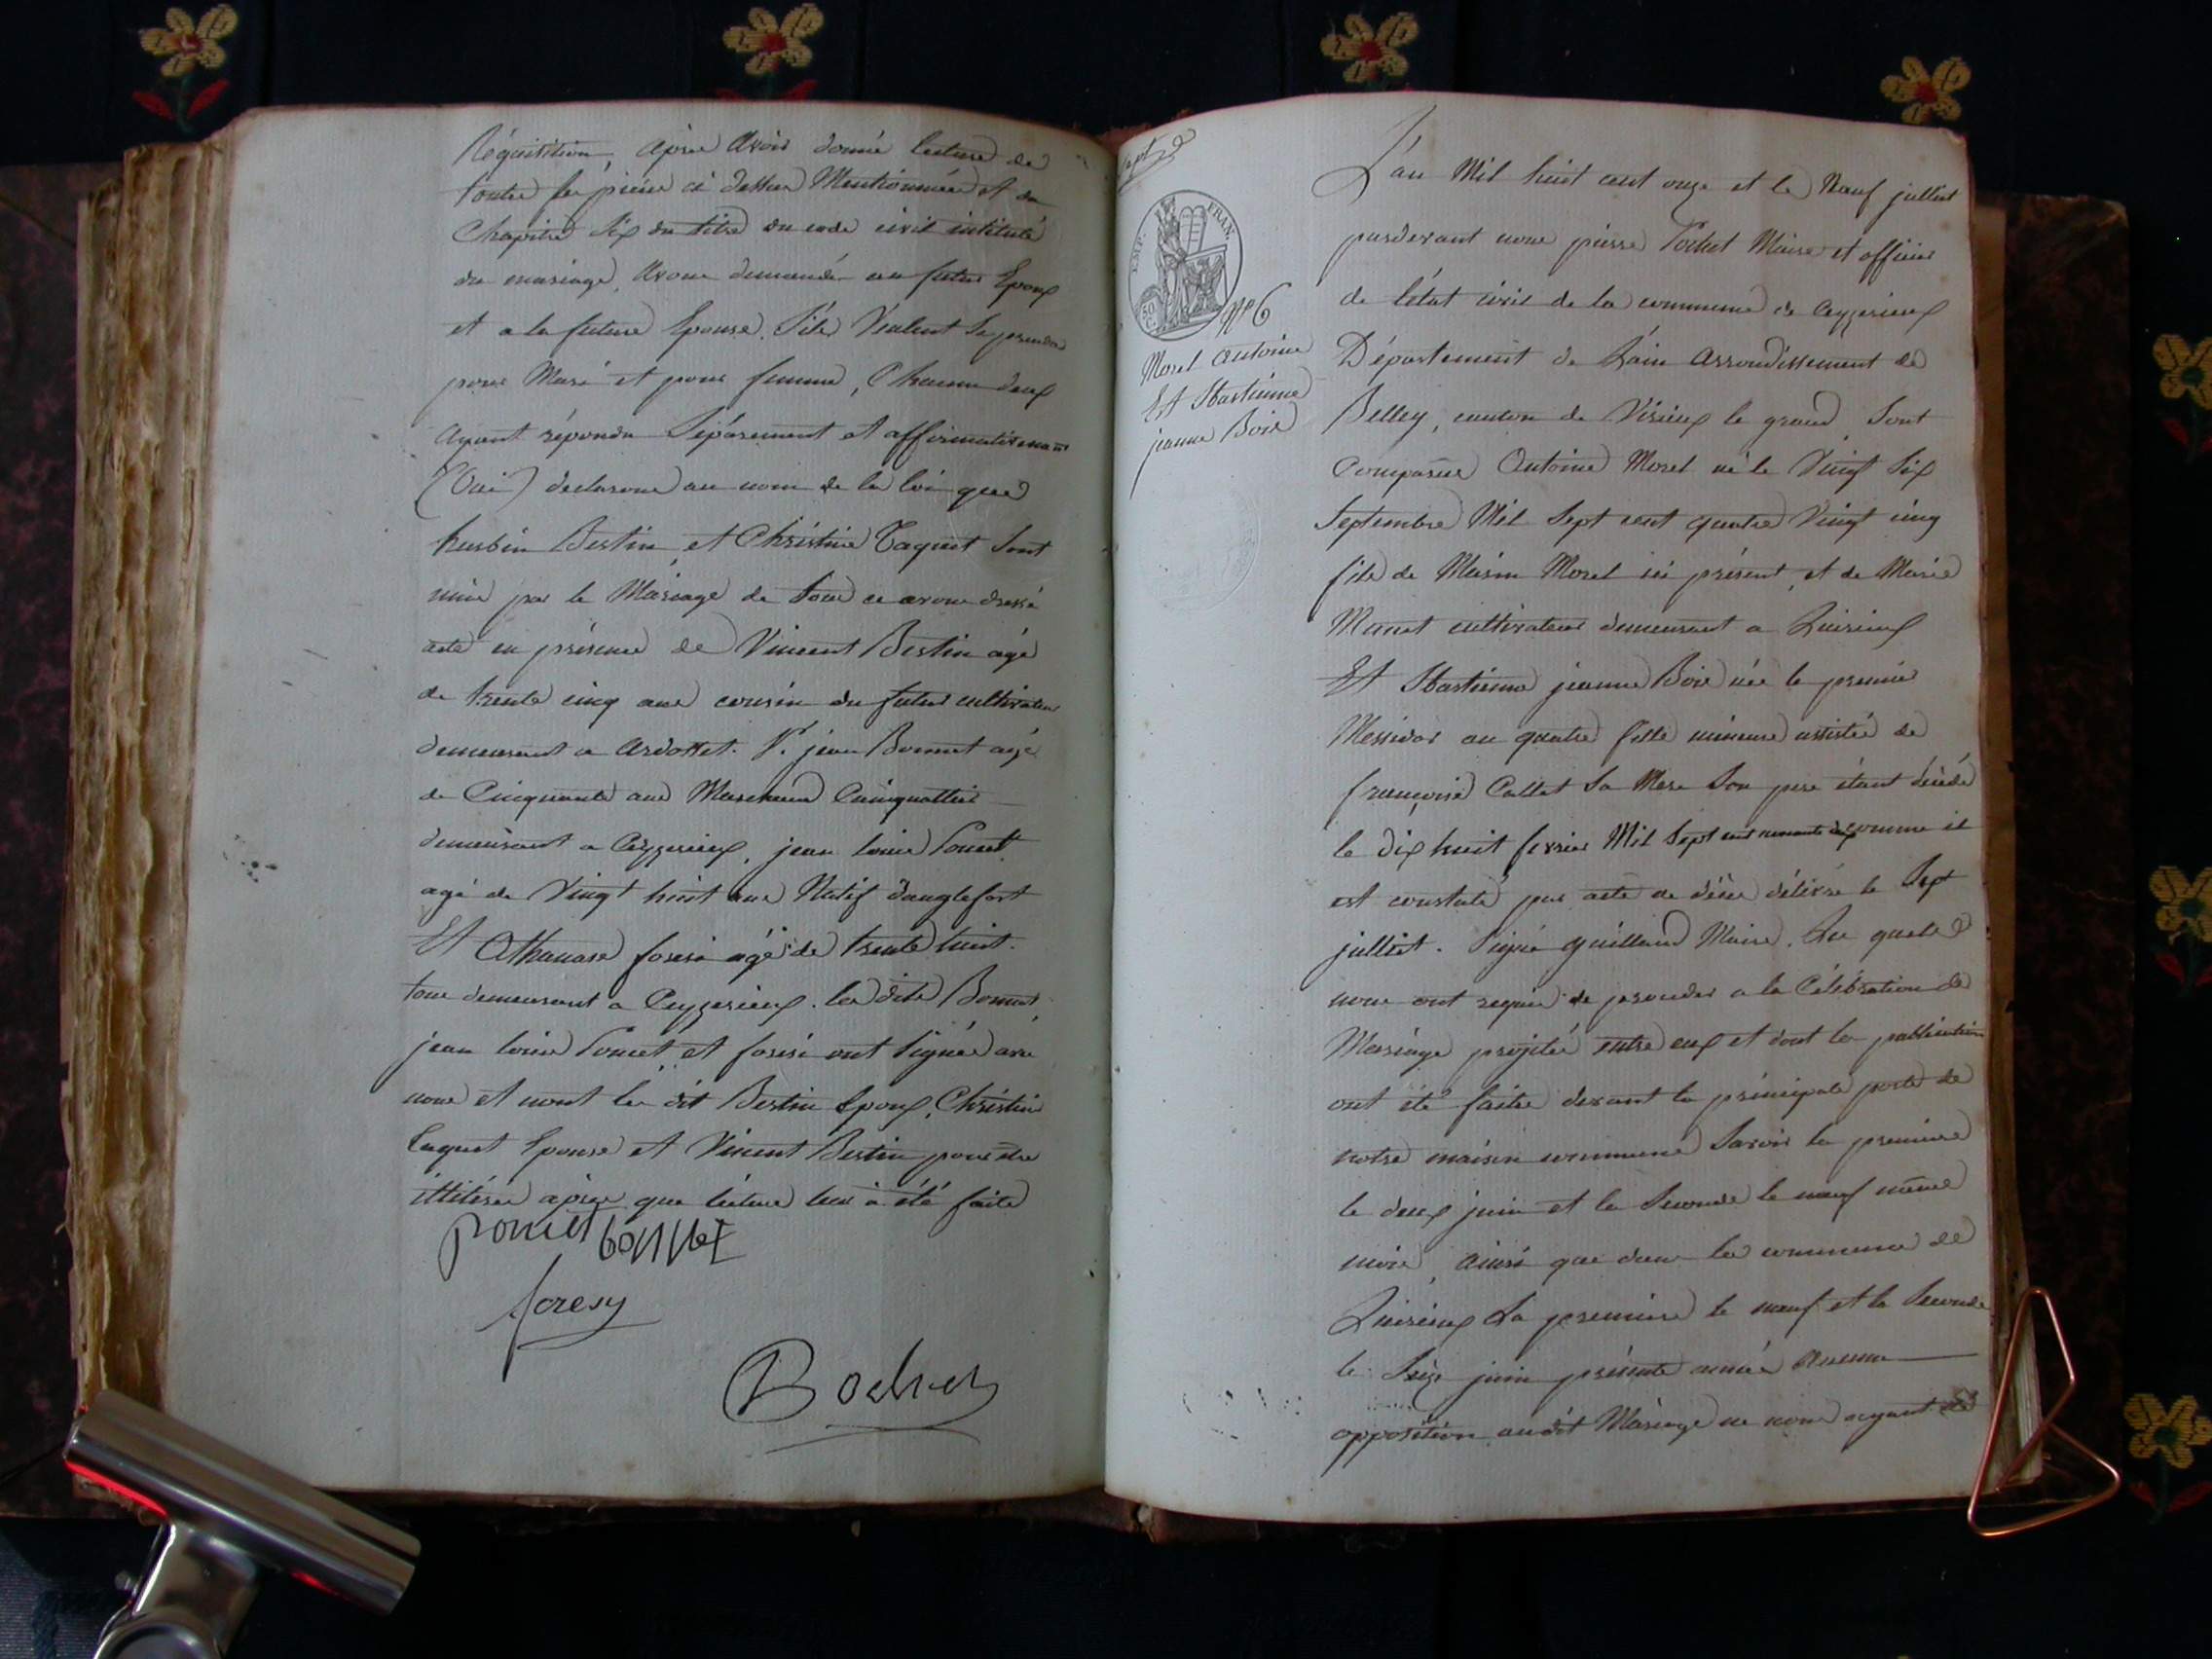 Réquisition, après avoir donné lecture de
toutes les pièces ci dessus Mentionnées et du
Chapitre Six du titre du code civil intitulé
du mariage, avons demandé au futur Epoux
et a la future Epouse, S'ils Veulent Se prendre
pour Mari et pour femme, Chacun deux
ayant répondu Séparement et affirmativement
(Oui) declarons au nom de la loi que
hurbin Bertin et Christine Taquet Sont
unis par le Mariage de tous ce avons dressé
acte en présence de Vincent Bertin agé
de trente cinq ans cousin du futur cultivateur
demeurant a ardosset. P. jean Bonnet agé
de Cinquante ans Marchand Cinquattier
demeurant a Ceyzerieux, jean louis Poncet
agé de Vingt huit ans Natif danglefort
Et Athanase foresi agé de trente huit.
tous demeurant a Ceyzerieux. les dits Bonnet,
jean louis Poncet et foresi ont Signés avec
nous et nont les dit Bertin Epoux, Christine
Taquet Epouse et Vincent Bertin pour être
illitérés après que lecture leur à été faite
poncet bonnet
foresy
Bochet
sept
EMP. FRAN.
50 C.
N° 6
Morel antoine
Et Sbastienne
jeanne Bois
L'an Mil huit cent onze et le Neuf juillet
pardevant nous pierre Bochet Maire et officier
de létat civil de la commune de Ceyzerieux
Département de Lain Arrondissement de
Belley, canton de Virieux le grand, Sont
Comparus Antoine Morel né le Vingt Six
Septembre Mil Sept cent quatre Vingt cinq
fils de Marin Morel ici présent, et de Marie
Munet cultivateur demeurant a Luirieux
Et Sbastienne jeanne Bois née le premier
Messidor an quatre fille mineure assistée de
françoise Callet Sa Mere Son pere étant décédé
le dix huit fevrier Mil Sept cent nonante comme il
est constaté par acte de décès délivré le Sept
julliet. Signé guilland Maire. Les quels
nous ont requis de proceder a la Célébration de
Mariage projeté entre eux et dont les publications
ont été faites devant la principale porte de
notre maison commune Savoir la premiere
le deux juin et la Seconde le neuf même
mois, ainsi que dans la commune de
Luirieux La premiere le neuf et la Seconde
le Seize juin présente année Aucune
opposition au dit Mariage ne nous ayant été